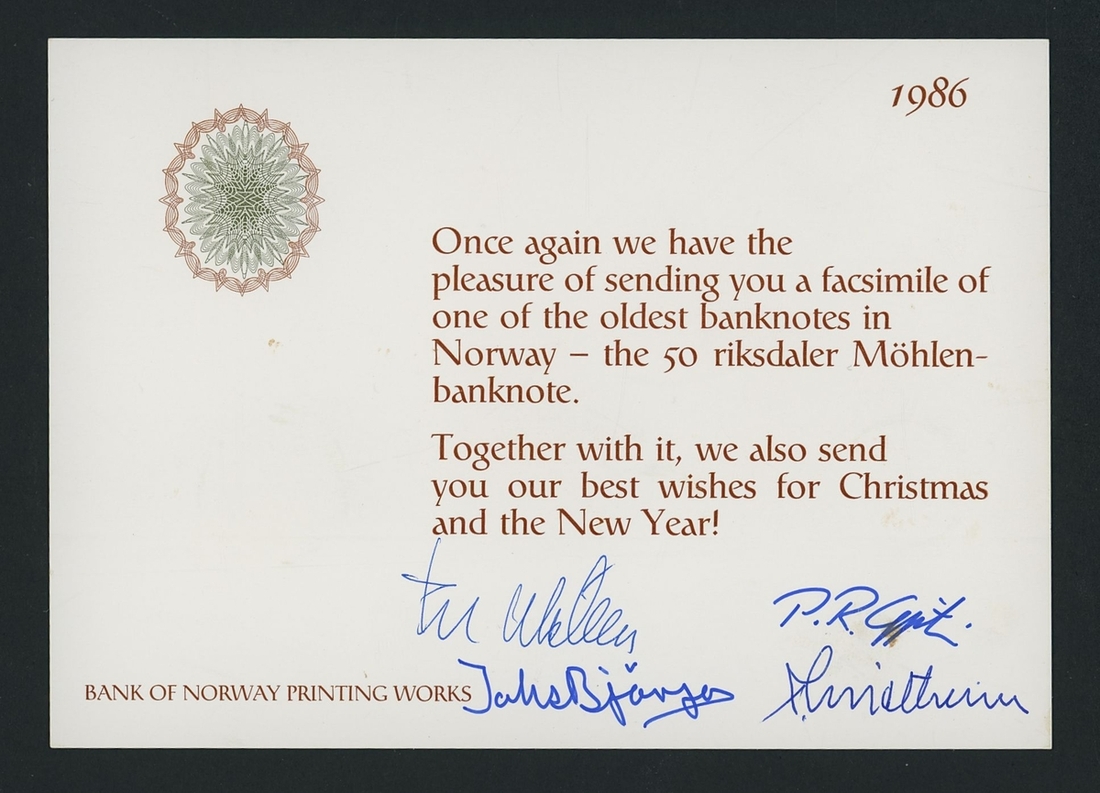 1986
Once again we have the
pleasure of sending you a facsimile of
one of the oldest banknotes in
Norway – the 50 riksdaler Möhlen-
banknote.
Together with it, we also send
you our best wishes for Christmas
and the New Year!
P.R.
BANK OF NORWAY PRINTING WORKS